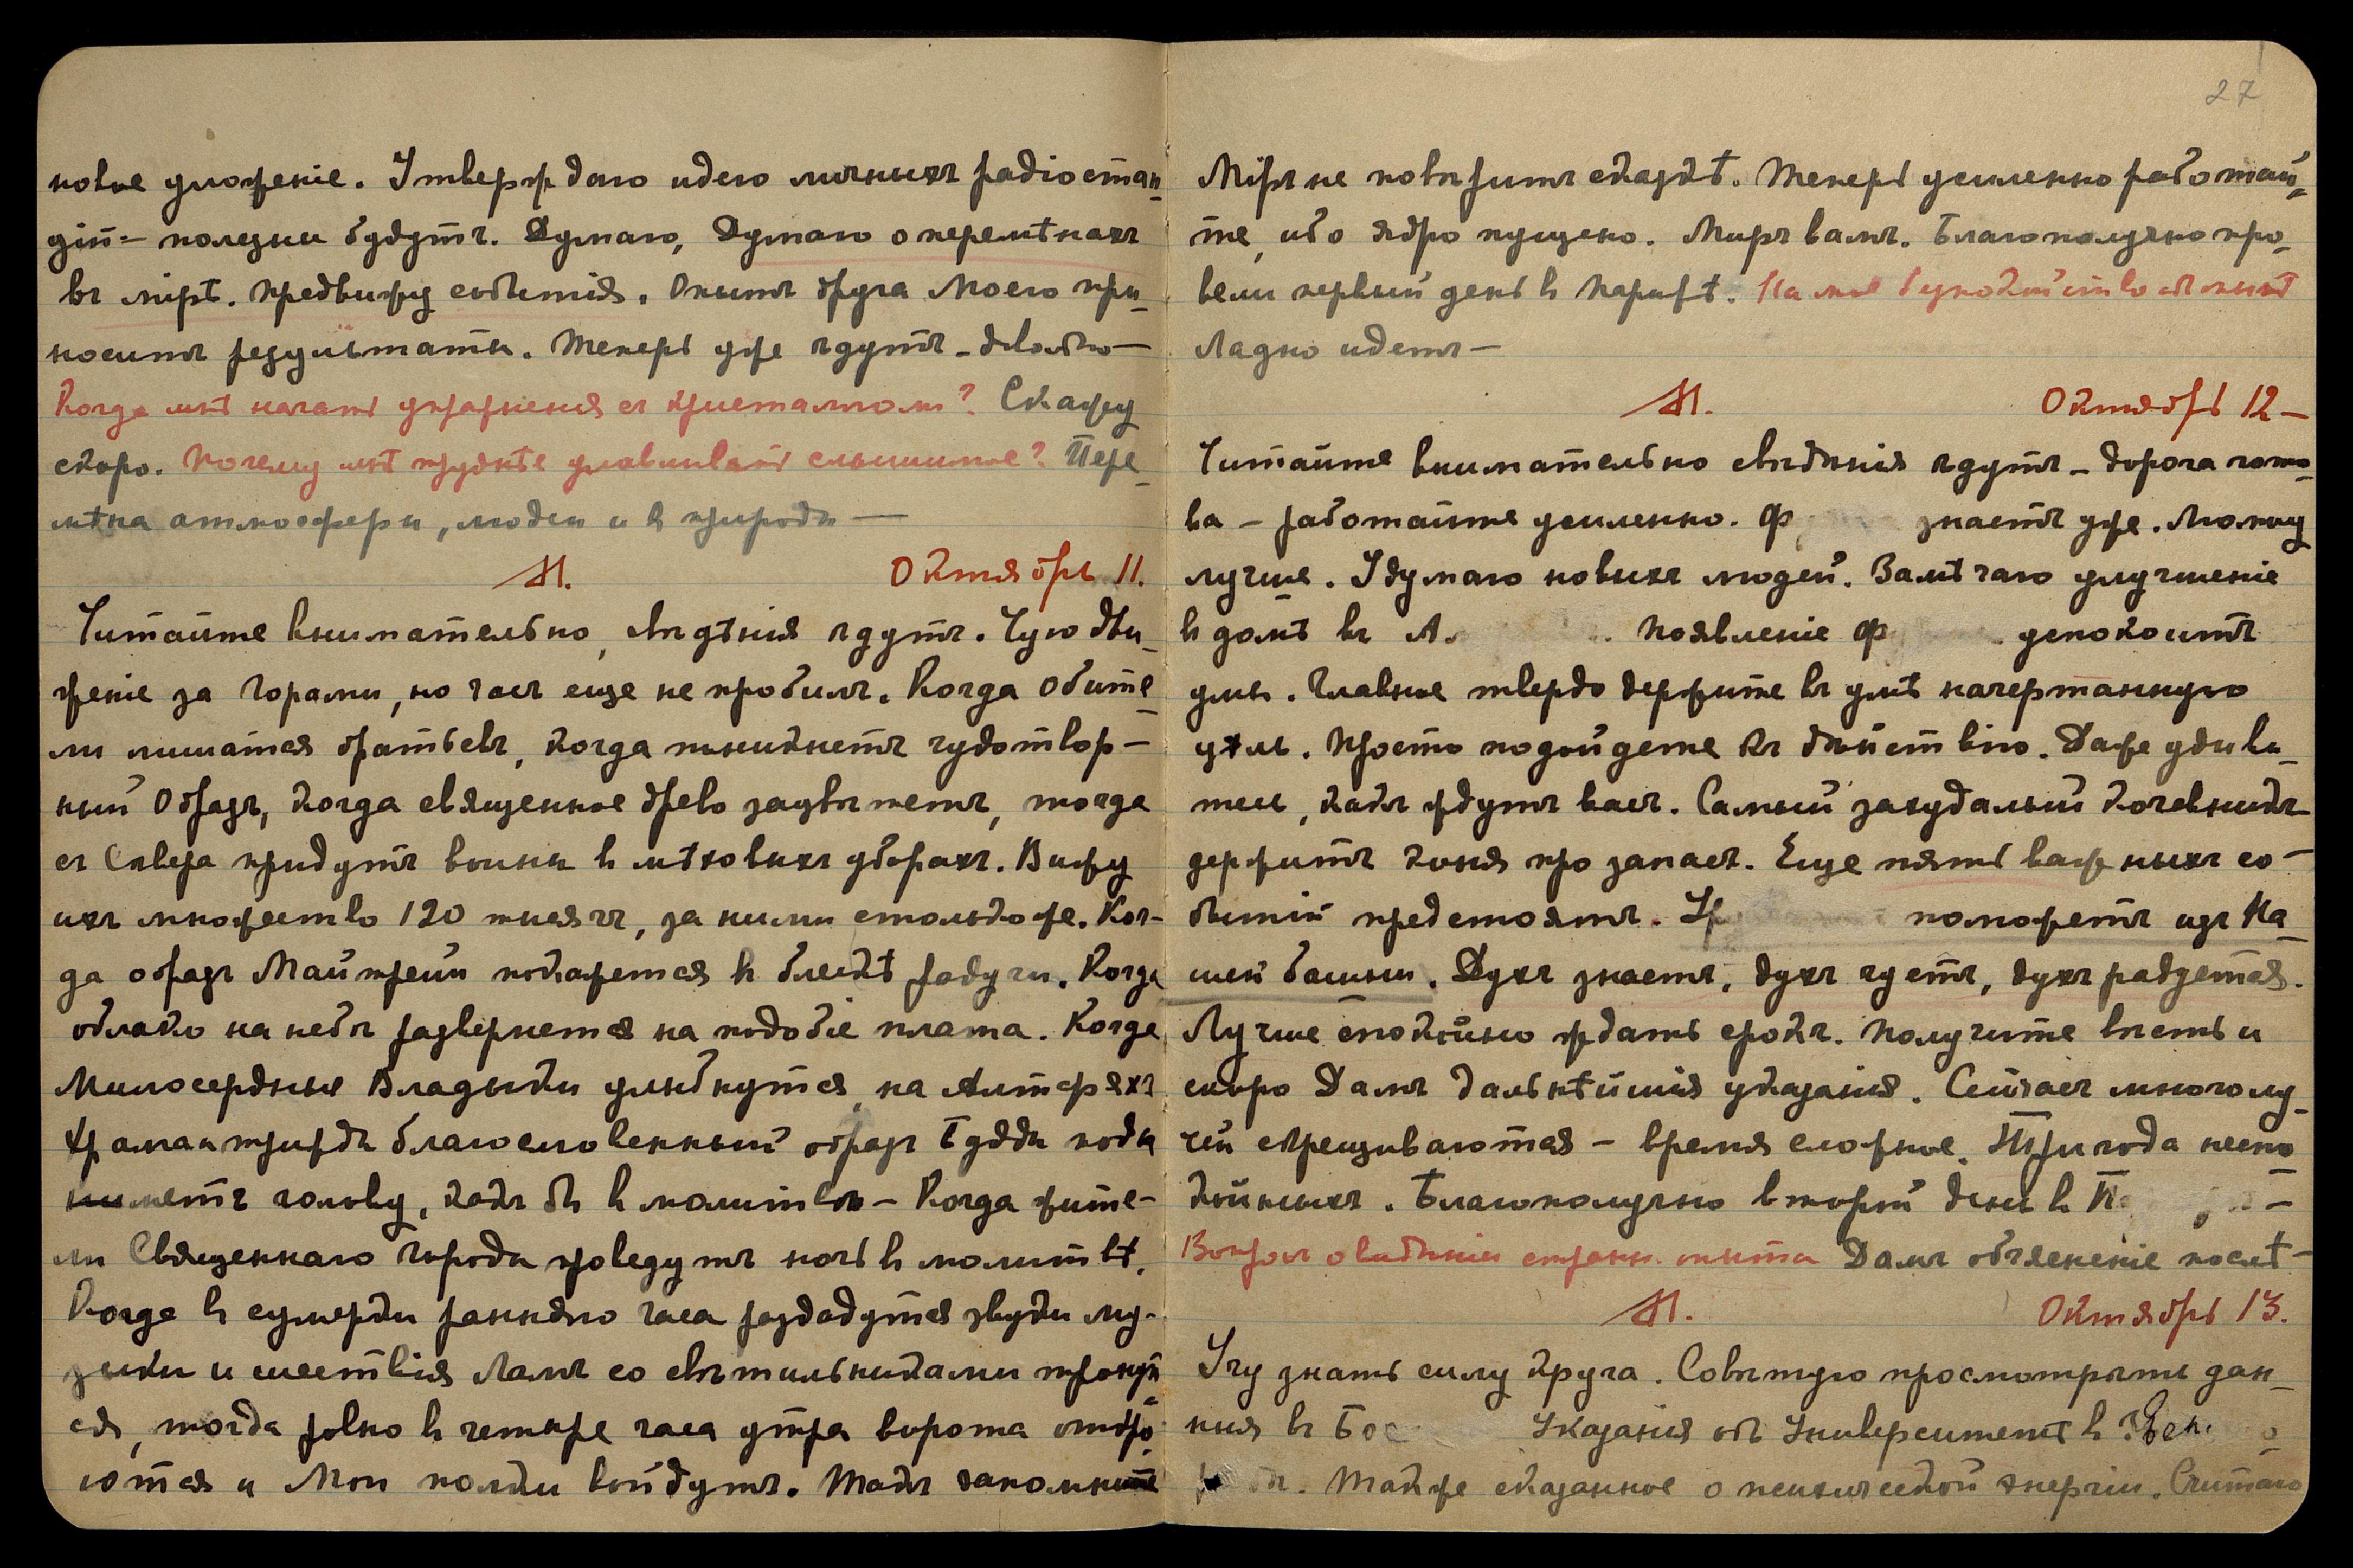 новое уложеніе. Утверждаю идею личныхъ радіостан-
цій – полезны будутъ. Думаю, Думаю о перемѣнахъ
въ мірѣ. Предвижу событія. Опытъ друга Моего при-
носитъ результаты. Теперь уже ѣдутъ –
Когда мнѣ начать упражненія съ кристалломъ? Скажу
скоро. Почему мнѣ труднѣе улавливать слышимое? Пере-
мѣна атмосферы, людей и в природѣ —
М. Октябрь 11.
Читайте внимательно, свѣдѣнія ѣдутъ. Чую дви-
женіе за Горами, но часъ еще не пробилъ. Когда Обите-
ли лишатся братьевъ, когда поникнетъ чудотвор-
ный Образъ, когда священное древо зацвѣтетъ, тогда
съ Сѣвера придутъ воины в мѣховыхъ уборахъ. Вижу
ихъ множество 120 тысячъ, за ними столько же. Ког-
да образъ Майтрейи покажется в блескѣ радуги. Когда
облако на небѣ развернется на подобіе плата. Когда
Милосердные Владыки улыбнутся на Алтаряхъ
Храма и трижды благословенный образъ Будды подн
ниметъ голову, какъ бы в молитвѣ – Когда жите-
ли Священнаго Города проведутъ ночь в молитвѣ.
Когда в сумерки ранняго часа раздадутся звуки му-
зыки и шествія Ламъ со свѣтильниками тронут
ся, тогда ровно в четыре часа утра ворота откро-
ются и Мои полки войдутъ. Такъ запомните
27
Міръ не повѣритъ сказкѣ. Теперь усиленно работай-
те, ибо ядро пущено. Миръ вамъ. Благополучно про-
вели первый день в Парижѣ. На мое безпокойство
Ладно идетъ —
М. Октябрь 12 –
Читайте внимательно свѣдѣнія ѣдутъ – дорога гото-
ва – работайте усиленно. Ф знаетъ уже. Могу
лучше. Удумаю новыхъ людей. Замѣчаю улучшеніе
в домѣ въ А. Появленіе Ф успокоитъ
умы. Главное твердо держите въ умѣ начертанную
цѣль. Просто подойдете къ дѣйствію. Даже удиви-
тесь, какъ ждутъ васъ. Самый захудалый кочевникъ
держитъ коня про запасъ. Еще пять важныхъ со-
бытій предстоятъ. Ур поможетъ изъ На-
шей башни. Духъ знаетъ, духъ чуетъ, духъ радуется.
Лучше спокойно ждать срокъ. Получите вѣсть и
скоро Дамъ дальнѣйшія указанія. Сейчасъ много лу-
чей скрещиваются – время сложное. Три года неспо-
койныхъ. Благополучно второй день в П –
Вопросъ о видѣніи Дамъ объясненіе послѣ –
М. Октябрь 13.
Учу знать силу круга. Совѣтую просмотрѣть дан-
ныя въ Бос Указанія объ Университетѣ в
Также сказанное о психической энергіи. Считаю